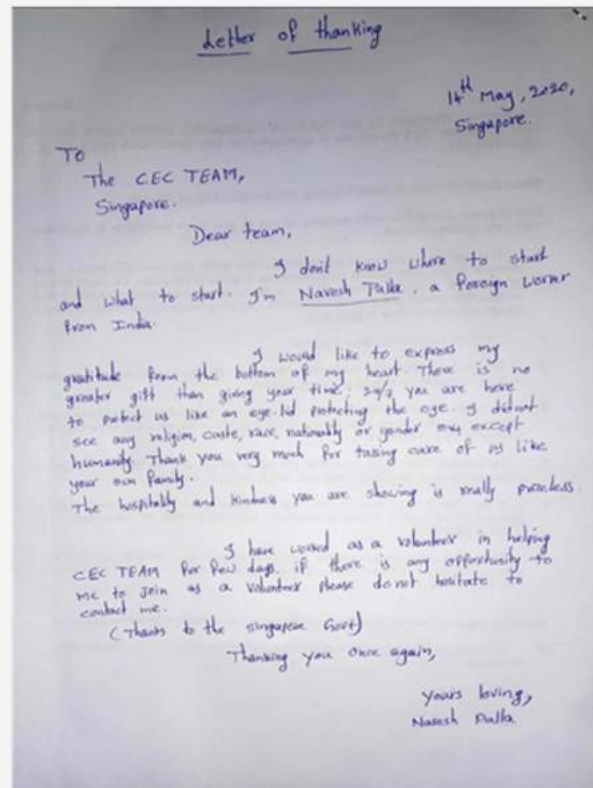 Letter of thanking
14th May, 2020,
Singapore.
TO
The CEC TEAM,
Singapore.
Dear team,
I don't know where to start
and what to start. I'm Naresh Pulla, a foreign worker
from India.
I would like to express my
gratitude from the bottom of my heart. There is no
greater gift than giving your time, 24/7 you are here
to protect us like an eye-lid protecting the eye. I did not
see any religion, caste, race, nationality or gender except
humanity. Thank you very much for taking care of us like
your own family.
The hospitality and kindness you are showing is really priceless.
I have worked as a volunteer in helping
CEC TEAM for few days, if there is any opportunity to
me to join as a volunteer please do not hesitate to
contact me.
(Thanks to the singapore Govt)
Thanking you once again,
yours loving,
Naresh Pulla